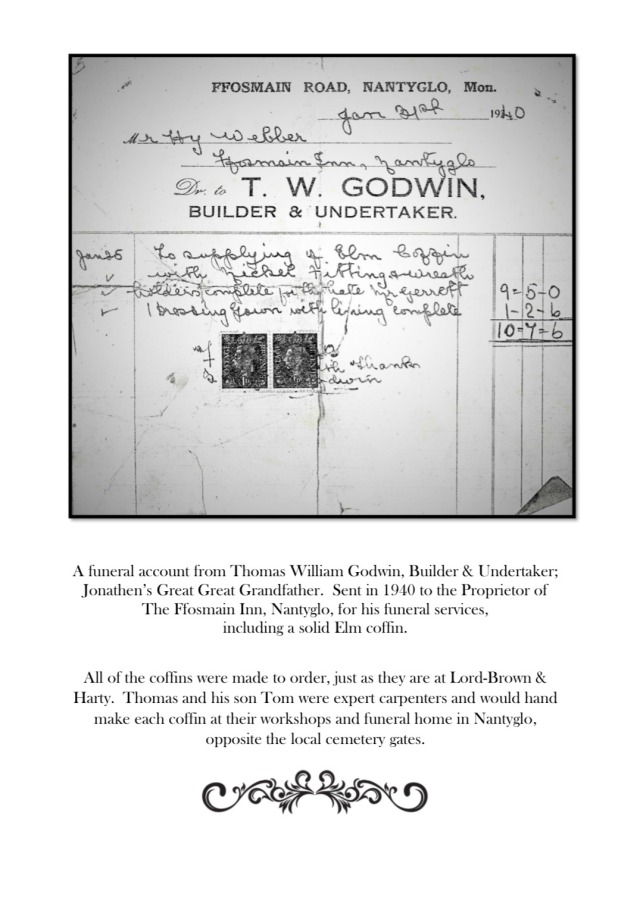 FFOSMAIN ROAD, NANTYGLO, Mon.
Jan 31st 1940
Mr Hy Webber
Ffosmain Inn, Nantyglo
Dr. to T. W. GODWIN,
BUILDER & UNDERTAKER.
Jan 26 To supplying of Elm Coffin
with Nickel Fittings & wreath
holders complete for the late Mr 9-5-0
1 Dressing Gown with lining complete 1-2-6
10-7-6
with Thanks
Godwin
A funeral account from Thomas William Godwin, Builder & Undertaker;
Jonathen's Great Great Grandfather. Sent in 1940 to the Proprietor of
The Ffosmain Inn, Nantyglo, for his funeral services,
including a solid Elm coffin.
All of the coffins were made to order, just as they are at Lord-Brown &
Harty. Thomas and his son Tom were expert carpenters and would hand
make each coffin at their workshops and funeral home in Nantyglo,
opposite the local cemetery gates.